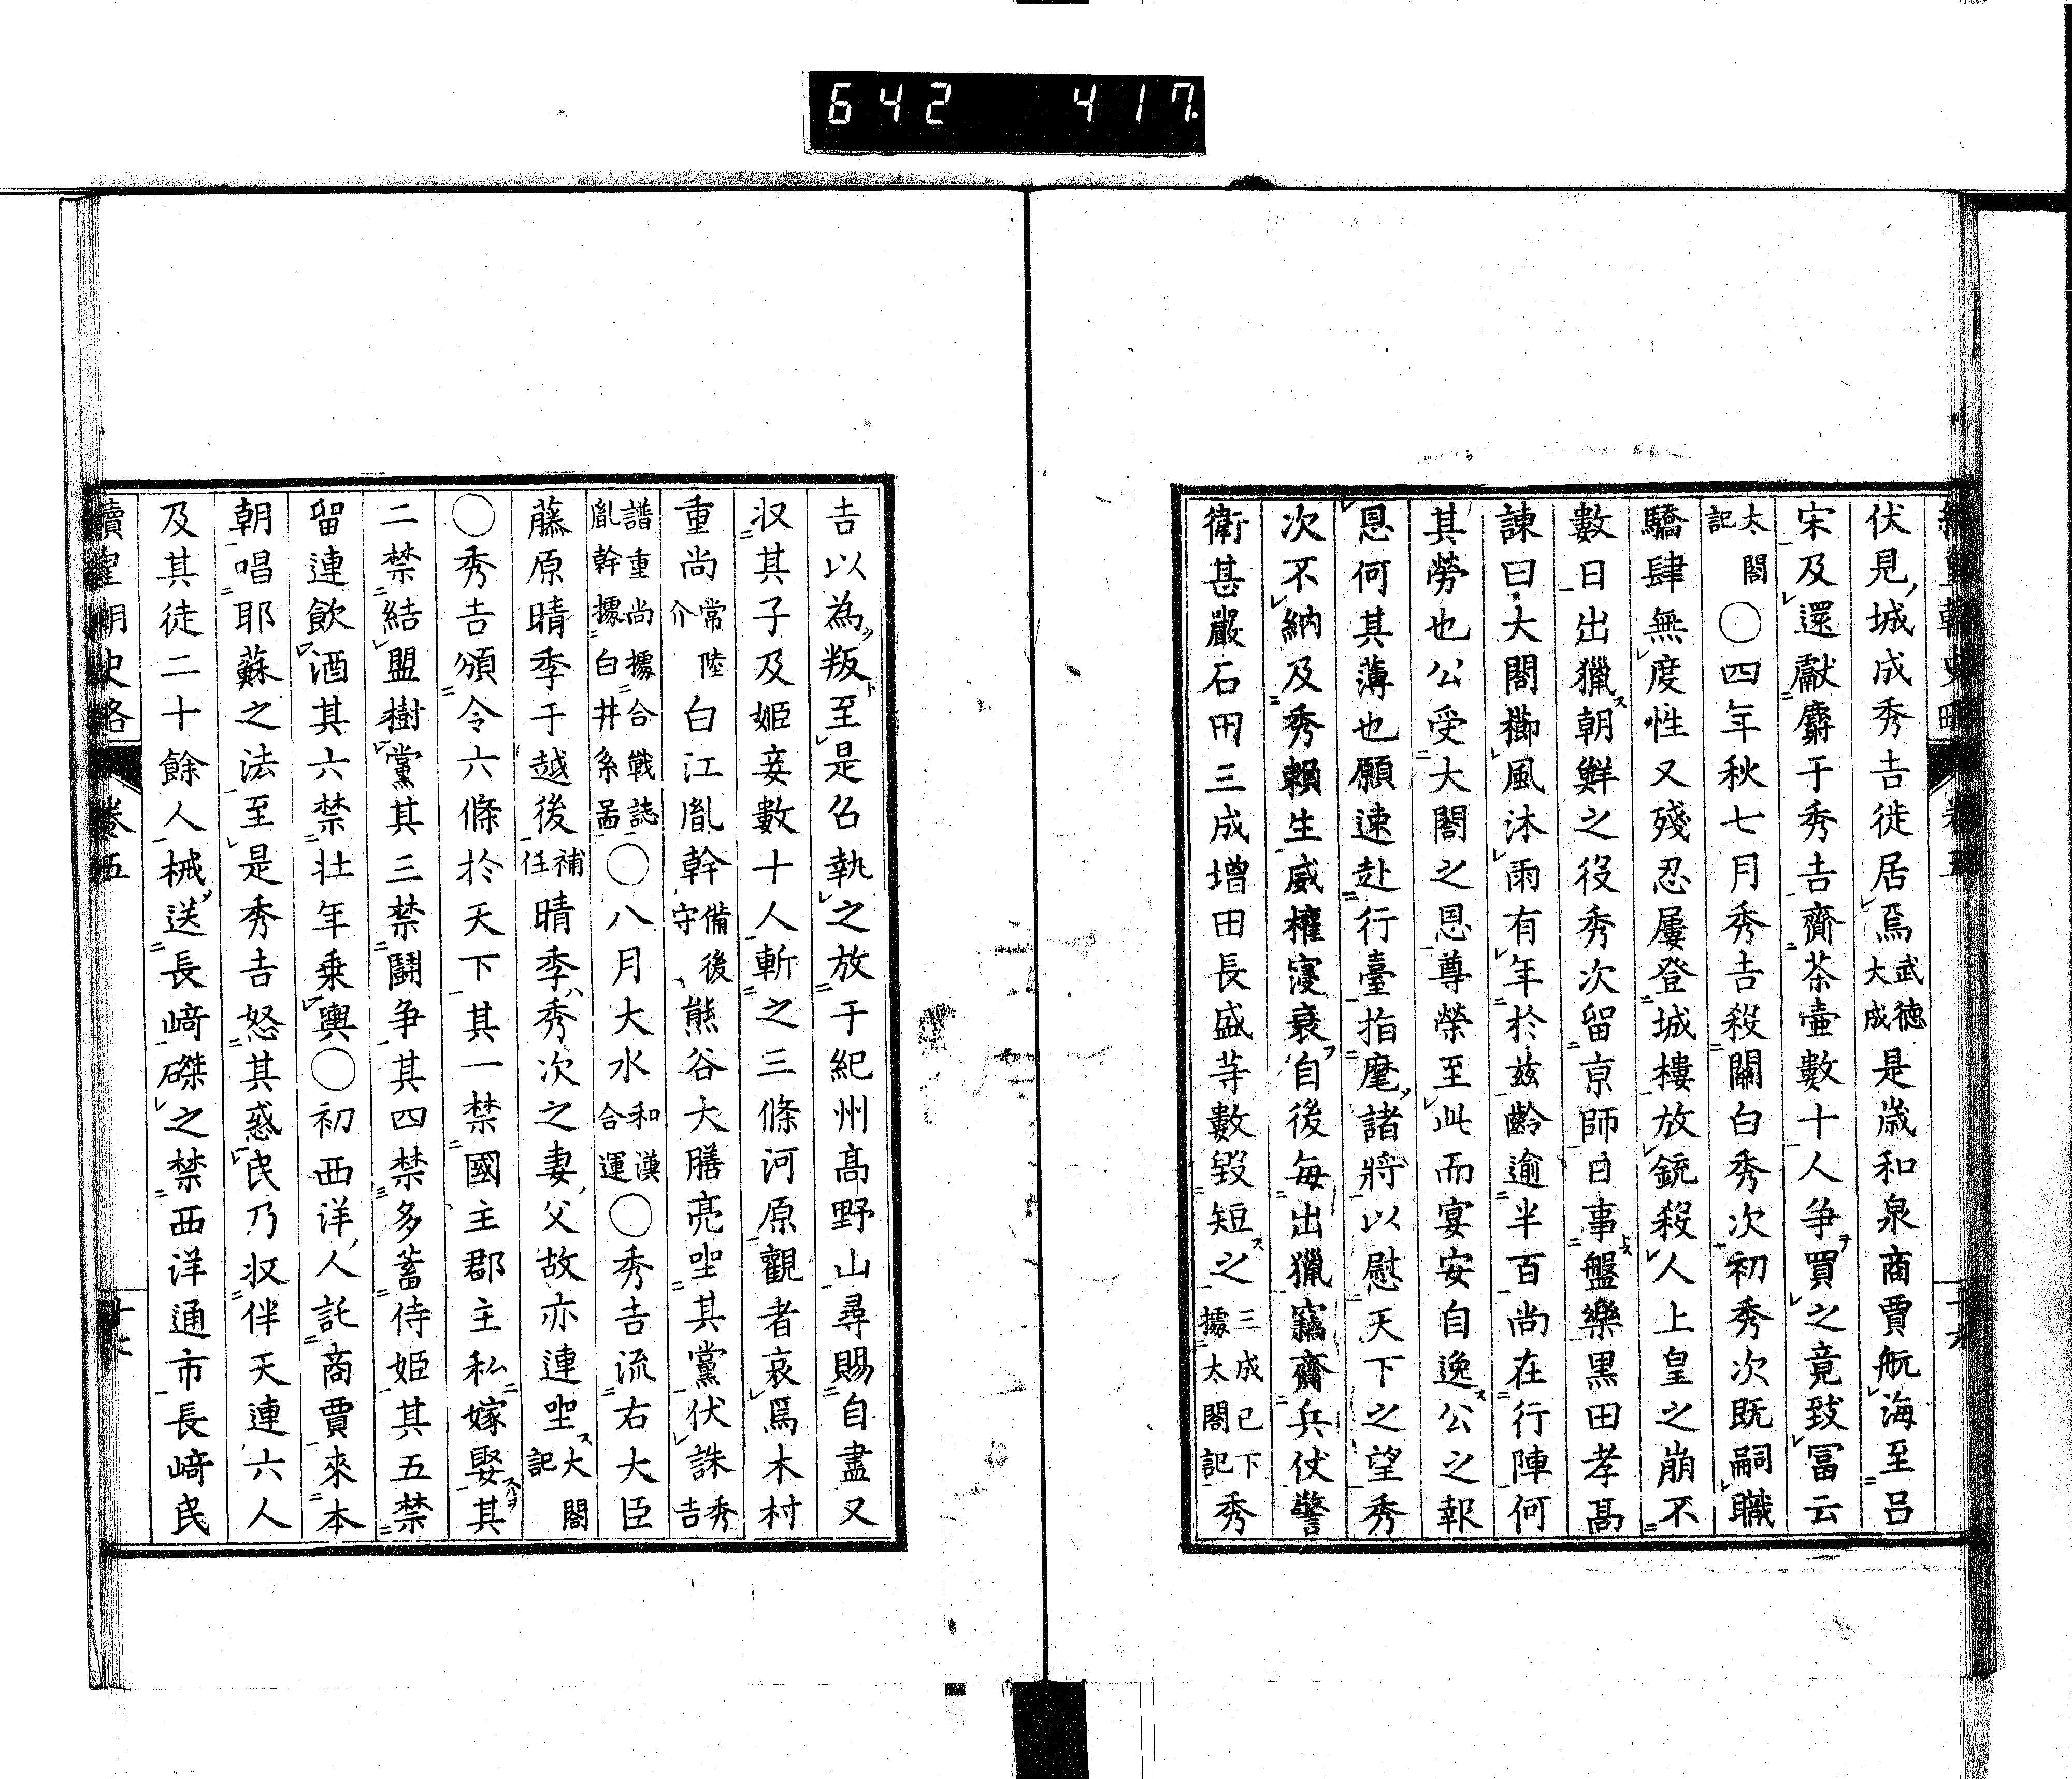 642 417
伏見城成秀吉徙居焉武德大成是歳和泉商賈航海至呂
宋及還獻麝于秀吉齎茶壷數十人爭買之竟致冨云
太閤記〇四年秋七月秀吉殺關白秀次初秀次既嗣職
驕肆無度性又殘忍屢登城樓放銃殺人上皇之崩不
數日出獵朝鮮之役秀次留京師日事盤樂黒田孝髙
諫曰大閤櫛風沐雨有年於茲齡逾半百尚在行陣何
其勞也公受大閤之恩尊榮至此而宴安自逸公之報
恩何其薄也願速赴行臺指麾諸將以慰天下之望秀
次不納及秀賴生威權寖衰自後毎出獵竊齎兵仗警
衛甚嚴石田三成増田長盛等數毀短之三成已下據太閤記秀
吉以為叛至是召執之放于紀州髙野山尋賜自盡又
収其子及姫妾數十人斬之三條河原觀者哀焉木村
重尚常陸介白江胤幹備後守熊谷大膳亮坐其黨伏誅秀吉
譜重尚據合戰誌胤幹據白井系啚〇八月大水和漢合運〇秀吉流右大臣
藤原晴季于越後補任晴季秀次之妻父故亦連坐大閤記
〇秀吉頒令六條於天下其一禁國主郡主私嫁娶其
二禁結盟樹黨其三禁鬪爭其四禁多蓄侍姫其五禁
留連飲酒其六禁壮年乗輿〇初西洋人託商賈來本
朝唱耶蘇之法至是秀吉怒其惑民乃収伴天連六人
及其徒二十餘人械送長﨑磔之禁西洋通市長﨑民
續皇朝史略 巻五